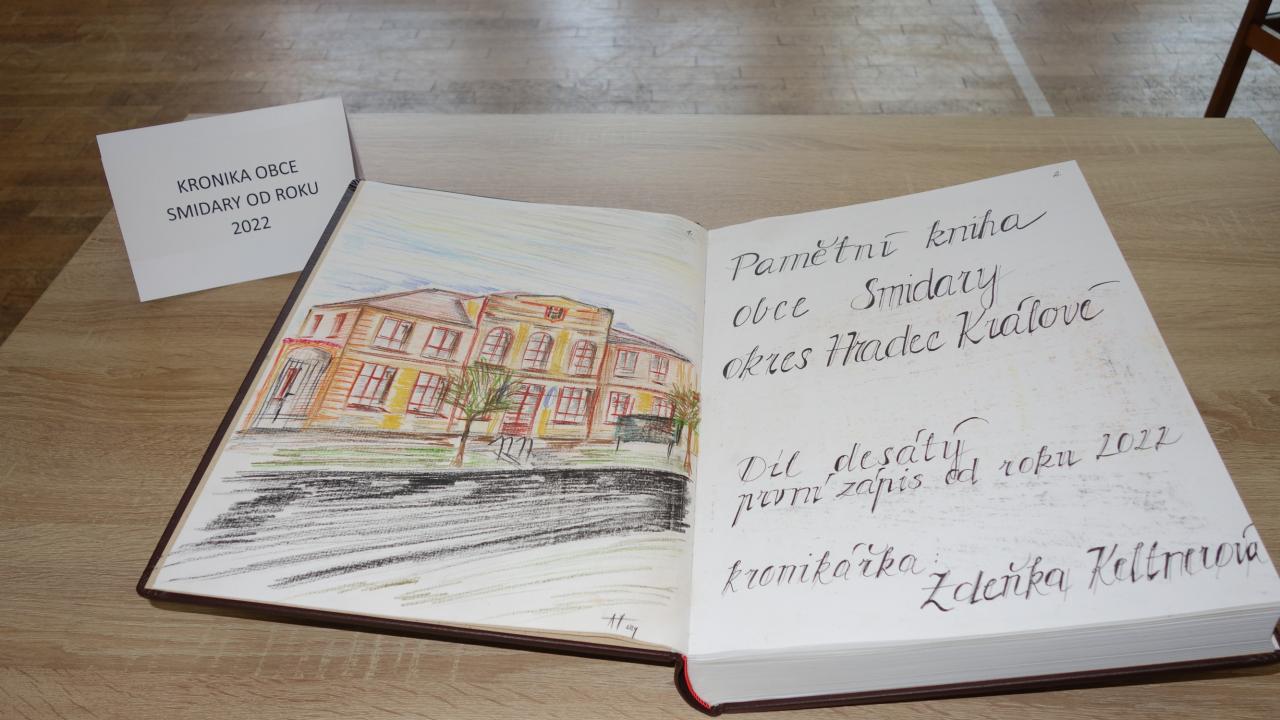 KRONIKA OBCE
SMIDARY OD ROKU
2022
1.
2.
Pamětní kniha
obce Smidary
okres Hradec Králové
Díl desátý
první zápis od roku 2022
kronikářka:
Zdeňka Keltnerová